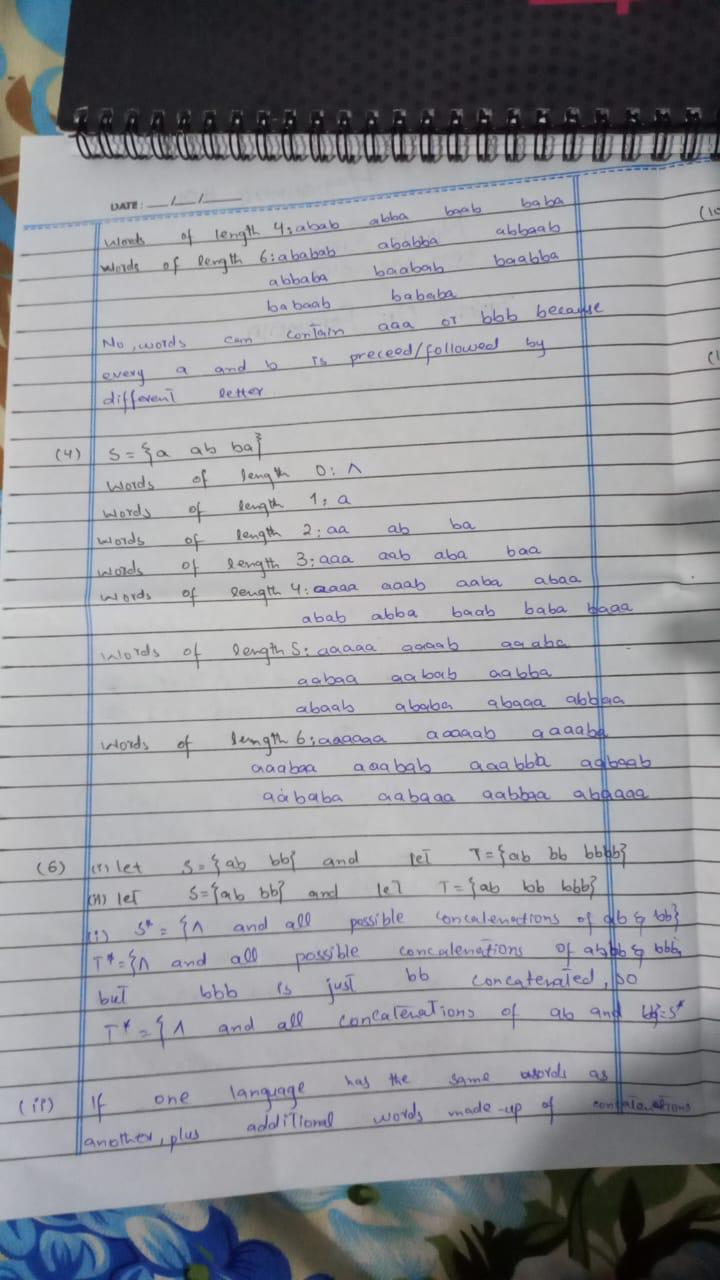 DATE: __/__/____
(10
words of length 4: abab abba baab baba
words of length 6: ababab ababba abbaab
abbaba baabab baabba
babaab bababa
No, words can contain aaa or bbb because
every a and b is preceed/followed by
different letter
(4) S = {a ab ba}
words of length 0: Λ
words of length 1: a
words of length 2: aa ab ba
words of length 3: aaa aab aba baa
words of length 4: aaaa aaab aaba abaa
abab abba baab baba baaa
words of length 5: aaaaa aaaab aaaba
aabaa aabab aabba
abaab ababa abaaa abbaa
words of length 6: aaaaaa aaaaab aaaaba
aaabaa aaabab aaabba aabaab
aababa aabaaa aabbaa abaaaa
(6) (i) let S = {ab bb} and let T = {ab bb bbbb}
(ii) let S = {ab bb} and let T = {ab bb bbb}
(i) S* = {Λ and all possible concatenations of ab & bb}
T* = {Λ and all possible concatenations of ab,bb & bbb,
but bbb is just bb concatenated, so
T* = {Λ and all concatenations of ab and bb} = S*
(ii) If one language has the same words as
another, plus additional words made-up of concatenations